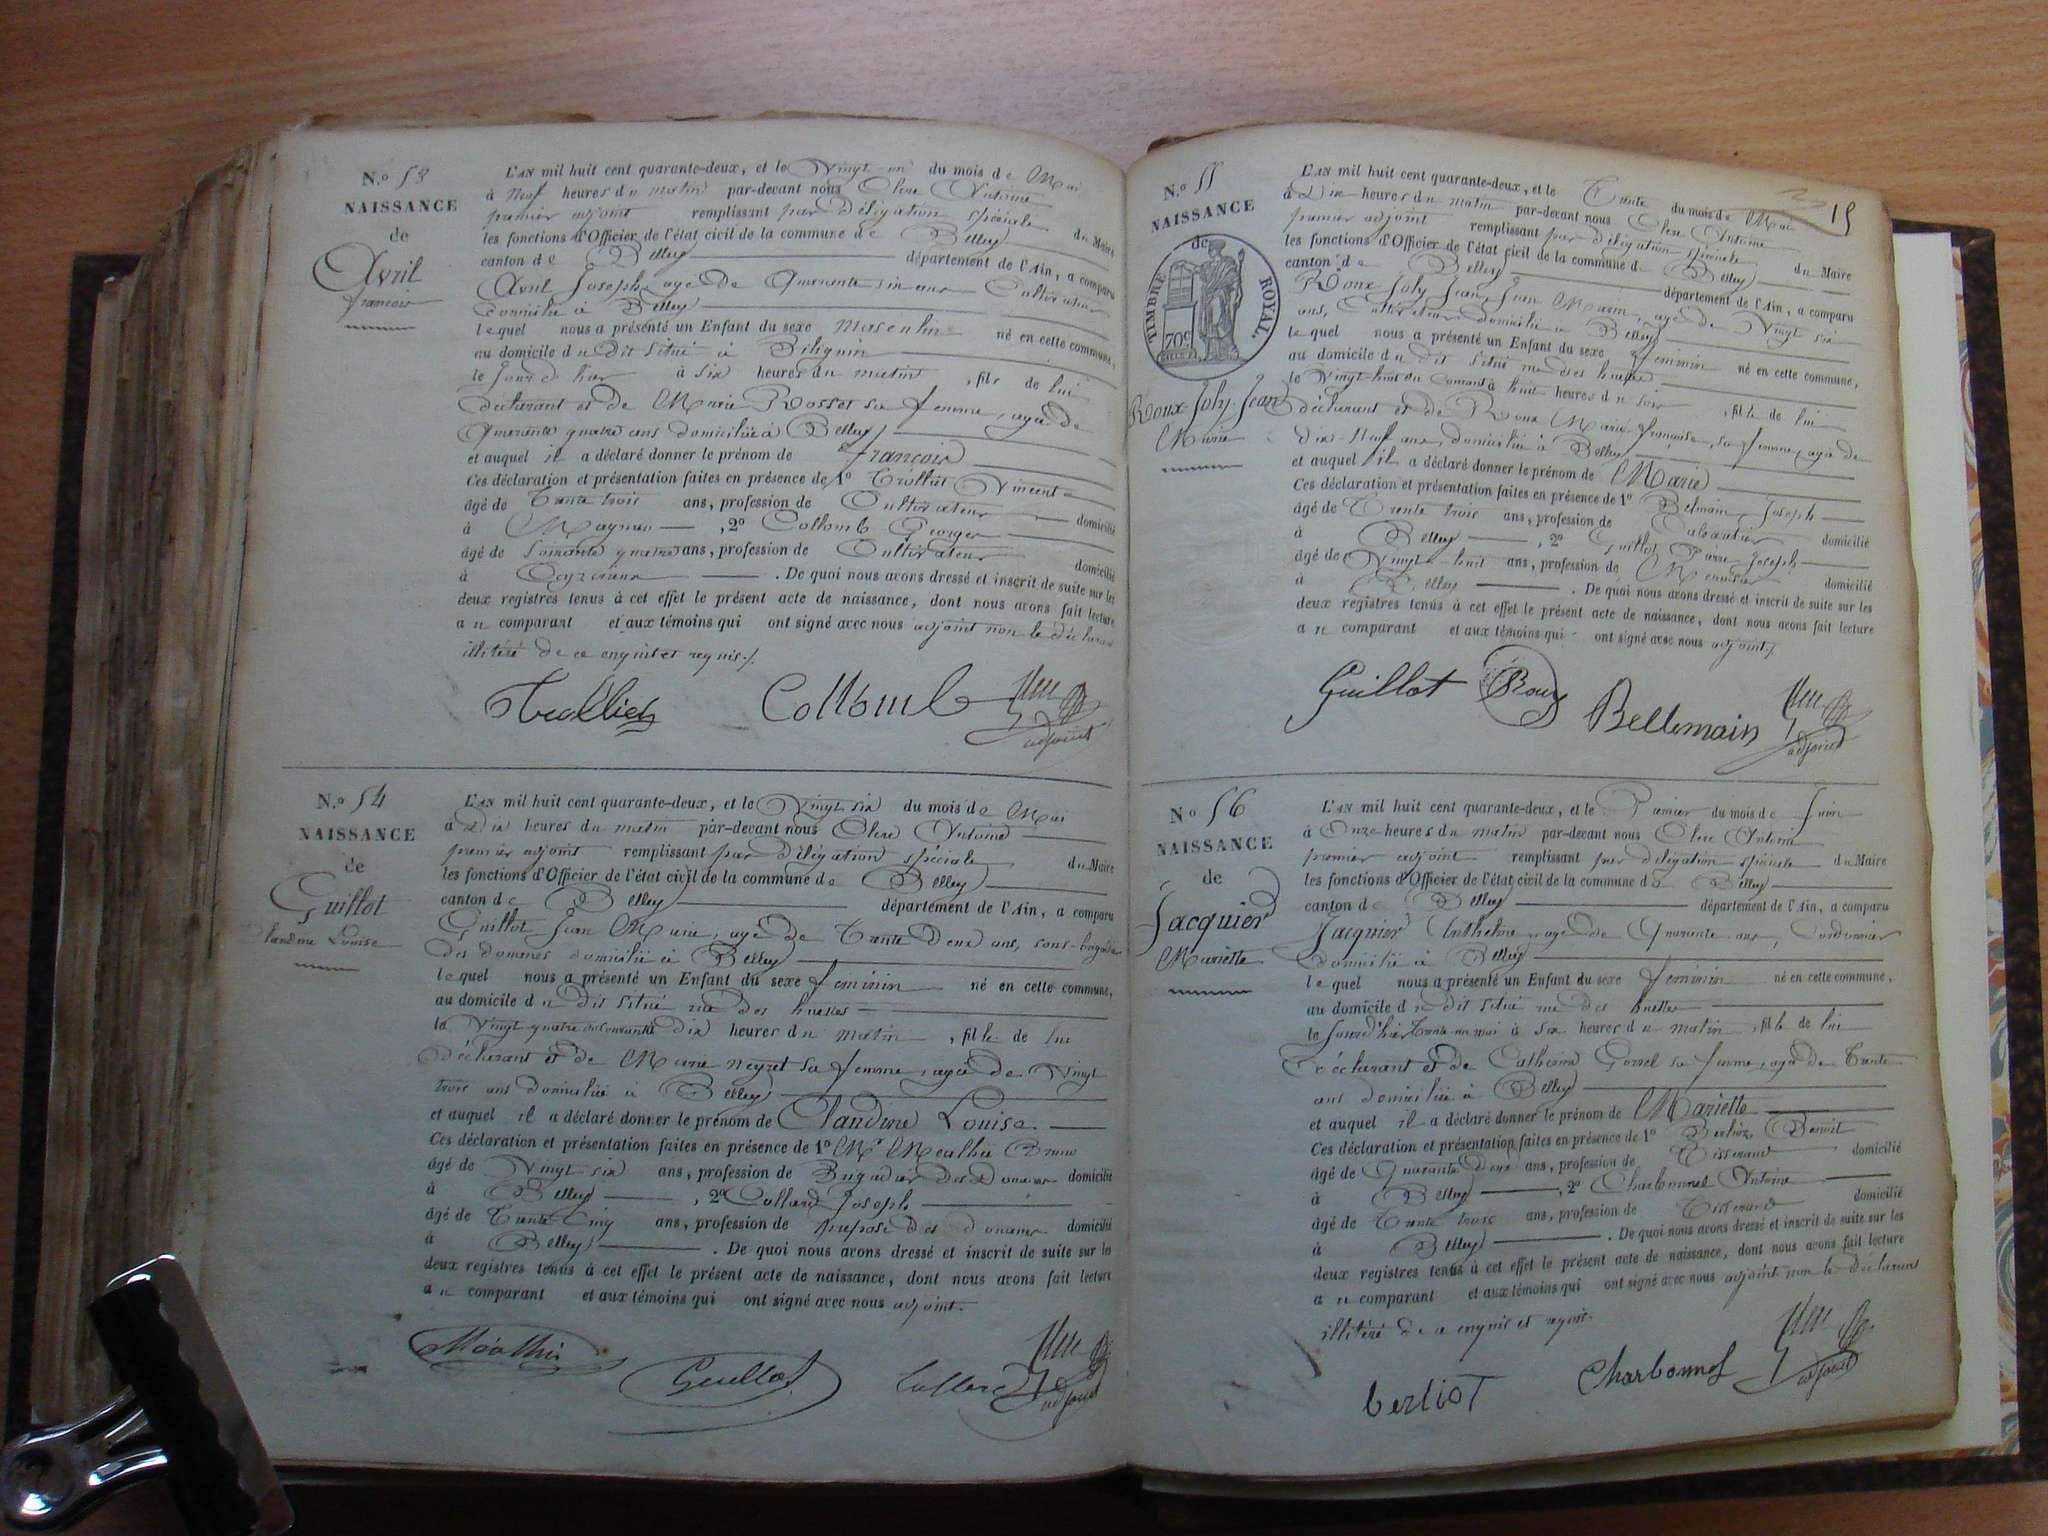 N.º 53
NAISSANCE
de
Avril
françois
L'AN mil huit cent quarante-deux, et le Vingt un du mois de Mai
à Neuf heures du matin par-devant nous Clerc Antoine
premier adjoint remplissant par délégation spéciale du Maire
les fonctions d'Officier de l'état civil de la commune de Belley
canton de Belley département de l'Ain, a comparu
Avril Joseph, agé de Quarante six ans Cultivateur
domicilié à Belley
lequel nous a présenté un Enfant du sexe masculin né en cette commune,
au domicile du dit situé à Billignin
le jour d'hier à six heures du matin, fils de lui
déclarant et de Marie Rosset sa femme, agée de
Quarante quatre ans domiciliée à Belley
et auquel il a déclaré donner le prénom de françois
Ces déclaration et présentation faites en présence de 1º Trolliet Vincent
âgé de Trente trois ans, profession de Cultivateur domicilié
à Magnieu, 2º Collomb Georges
âgé de soixante quatre ans, profession de Cultivateur domicilié
à . De quoi nous avons dressé et inscrit de suite sur les
deux registres tenus à cet effet le présent acte de naissance, dont nous avons fait lecture
au comparant et aux témoins qui ont signé avec nous adjoint non le déclarant
illitéré de ce enquis et requis./.
Trolliet Collomb Clerc
adjoint
N.º 54
NAISSANCE
de
Guillot
Claudine Louise
L'AN mil huit cent quarante-deux, et le Vingt six du mois de Mai
à Dix heures du matin par-devant nous Clerc Antoine
premier adjoint remplissant par délégation spéciale du Maire
les fonctions d'Officier de l'état civil de la commune de Belley
canton de Belley département de l'Ain, a comparu
Guillot Jean Marie, agé de Trente deux ans, sous-brigadier
des douanes domicilié à Belley
lequel nous a présenté un Enfant du sexe féminin né en cette commune,
au domicile du dit situé rue des huelles
le Vingt quatre du courant à dix heures du matin, fille de lui
déclarant et de Marie Neyret sa femme, agée de Vingt
trois ans domiciliée à Belley
et auquel il a déclaré donner le prénom de Claudine Louise.
Ces déclaration et présentation faites en présence de 1º Mr Méalhie Bruno
âgé de Vingt six ans, profession de Brigadier des douanes domicilié
à Belley, 2º Collard Joseph
âgé de Trente Cinq ans, profession de préposé des douanes domicilié
à Belley. De quoi nous avons dressé et inscrit de suite sur les
deux registres tenus à cet effet le présent acte de naissance, dont nous avons fait lecture
au comparant et aux témoins qui ont signé avec nous adjoint.
Guillot Clerc
adjoint
15
N.º 55
NAISSANCE
de
TIMBRE ROYAL.
70c
Roux-Joly-Jean
Marie
L'AN mil huit cent quarante-deux, et le Trente du mois de Mai
à Dix heures du matin par-devant nous Clerc Antoine
premier adjoint remplissant par délégation spéciale du Maire
les fonctions d'Officier de l'état civil de la commune de Belley
canton de Belley département de l'Ain, a comparu
Roux-Joly-Jean, Jean Marin, agé de Vingt six
ans, Cultivateur domicilié à Belley
lequel nous a présenté un Enfant du sexe féminin né en cette commune,
au domicile du dit situé rue des huelles
le Vingt-huit du Courant à huit heures du soir, fille de lui
déclarant et de Roux Marie françoise, sa femme, agée de
Dix-Neuf ans, domiciliée à Belley
et auquel il a déclaré donner le prénom de Marie
Ces déclaration et présentation faites en présence de 1º Belmain Joseph
âgé de Trente trois ans, profession de Cabaretier domicilié
à Belley, 2º Guillot Pierre Joseph
âgé de Vingt-huit ans, profession de Menuisier domicilié
à Belley. De quoi nous avons dressé et inscrit de suite sur les
deux registres tenus à cet effet le présent acte de naissance, dont nous avons fait lecture
au comparant et aux témoins qui ont signé avec nous adjoint./.
Guillot Roux Bellemain Clerc
adjoint
N.º 56
NAISSANCE
de
Jacquier
Mariette
L'AN mil huit cent quarante-deux, et le Premier du mois de Juin
à Onze heures du matin par-devant nous Clerc Antoine
premier adjoint remplissant par délégation spéciale du Maire
les fonctions d'Officier de l'état civil de la commune de Belley
canton de Belley département de l'Ain, a comparu
Jacquier Anthelme, agé de Quarante ans, Cordonnier
domicilié à Belley
lequel nous a présenté un Enfant du sexe féminin né en cette commune,
au domicile du dit situé rue des huelles
le jour d'hier trente-un mai à six heures du matin, fille de lui
déclarant et de Catherine Gonnel sa femme, agée de Trente
ans domiciliée à Belley
et auquel il a déclaré donner le prénom de Mariette
Ces déclaration et présentation faites en présence de 1º Berlioz Benoit
âgé de Quarante deux ans, profession de Tisserand domicilié
à Belley, 2º Charbonnel Antoine
âgé de Trente trois ans, profession de Tisserand domicilié
à Belley. De quoi nous avons dressé et inscrit de suite sur les
deux registres tenus à cet effet le présent acte de naissance, dont nous avons fait lecture
au comparant et aux témoins qui ont signé avec nous adjoint non le déclarant
illitéré de ce enquis et requis.
berliot Charbonnel Clerc
adjoint